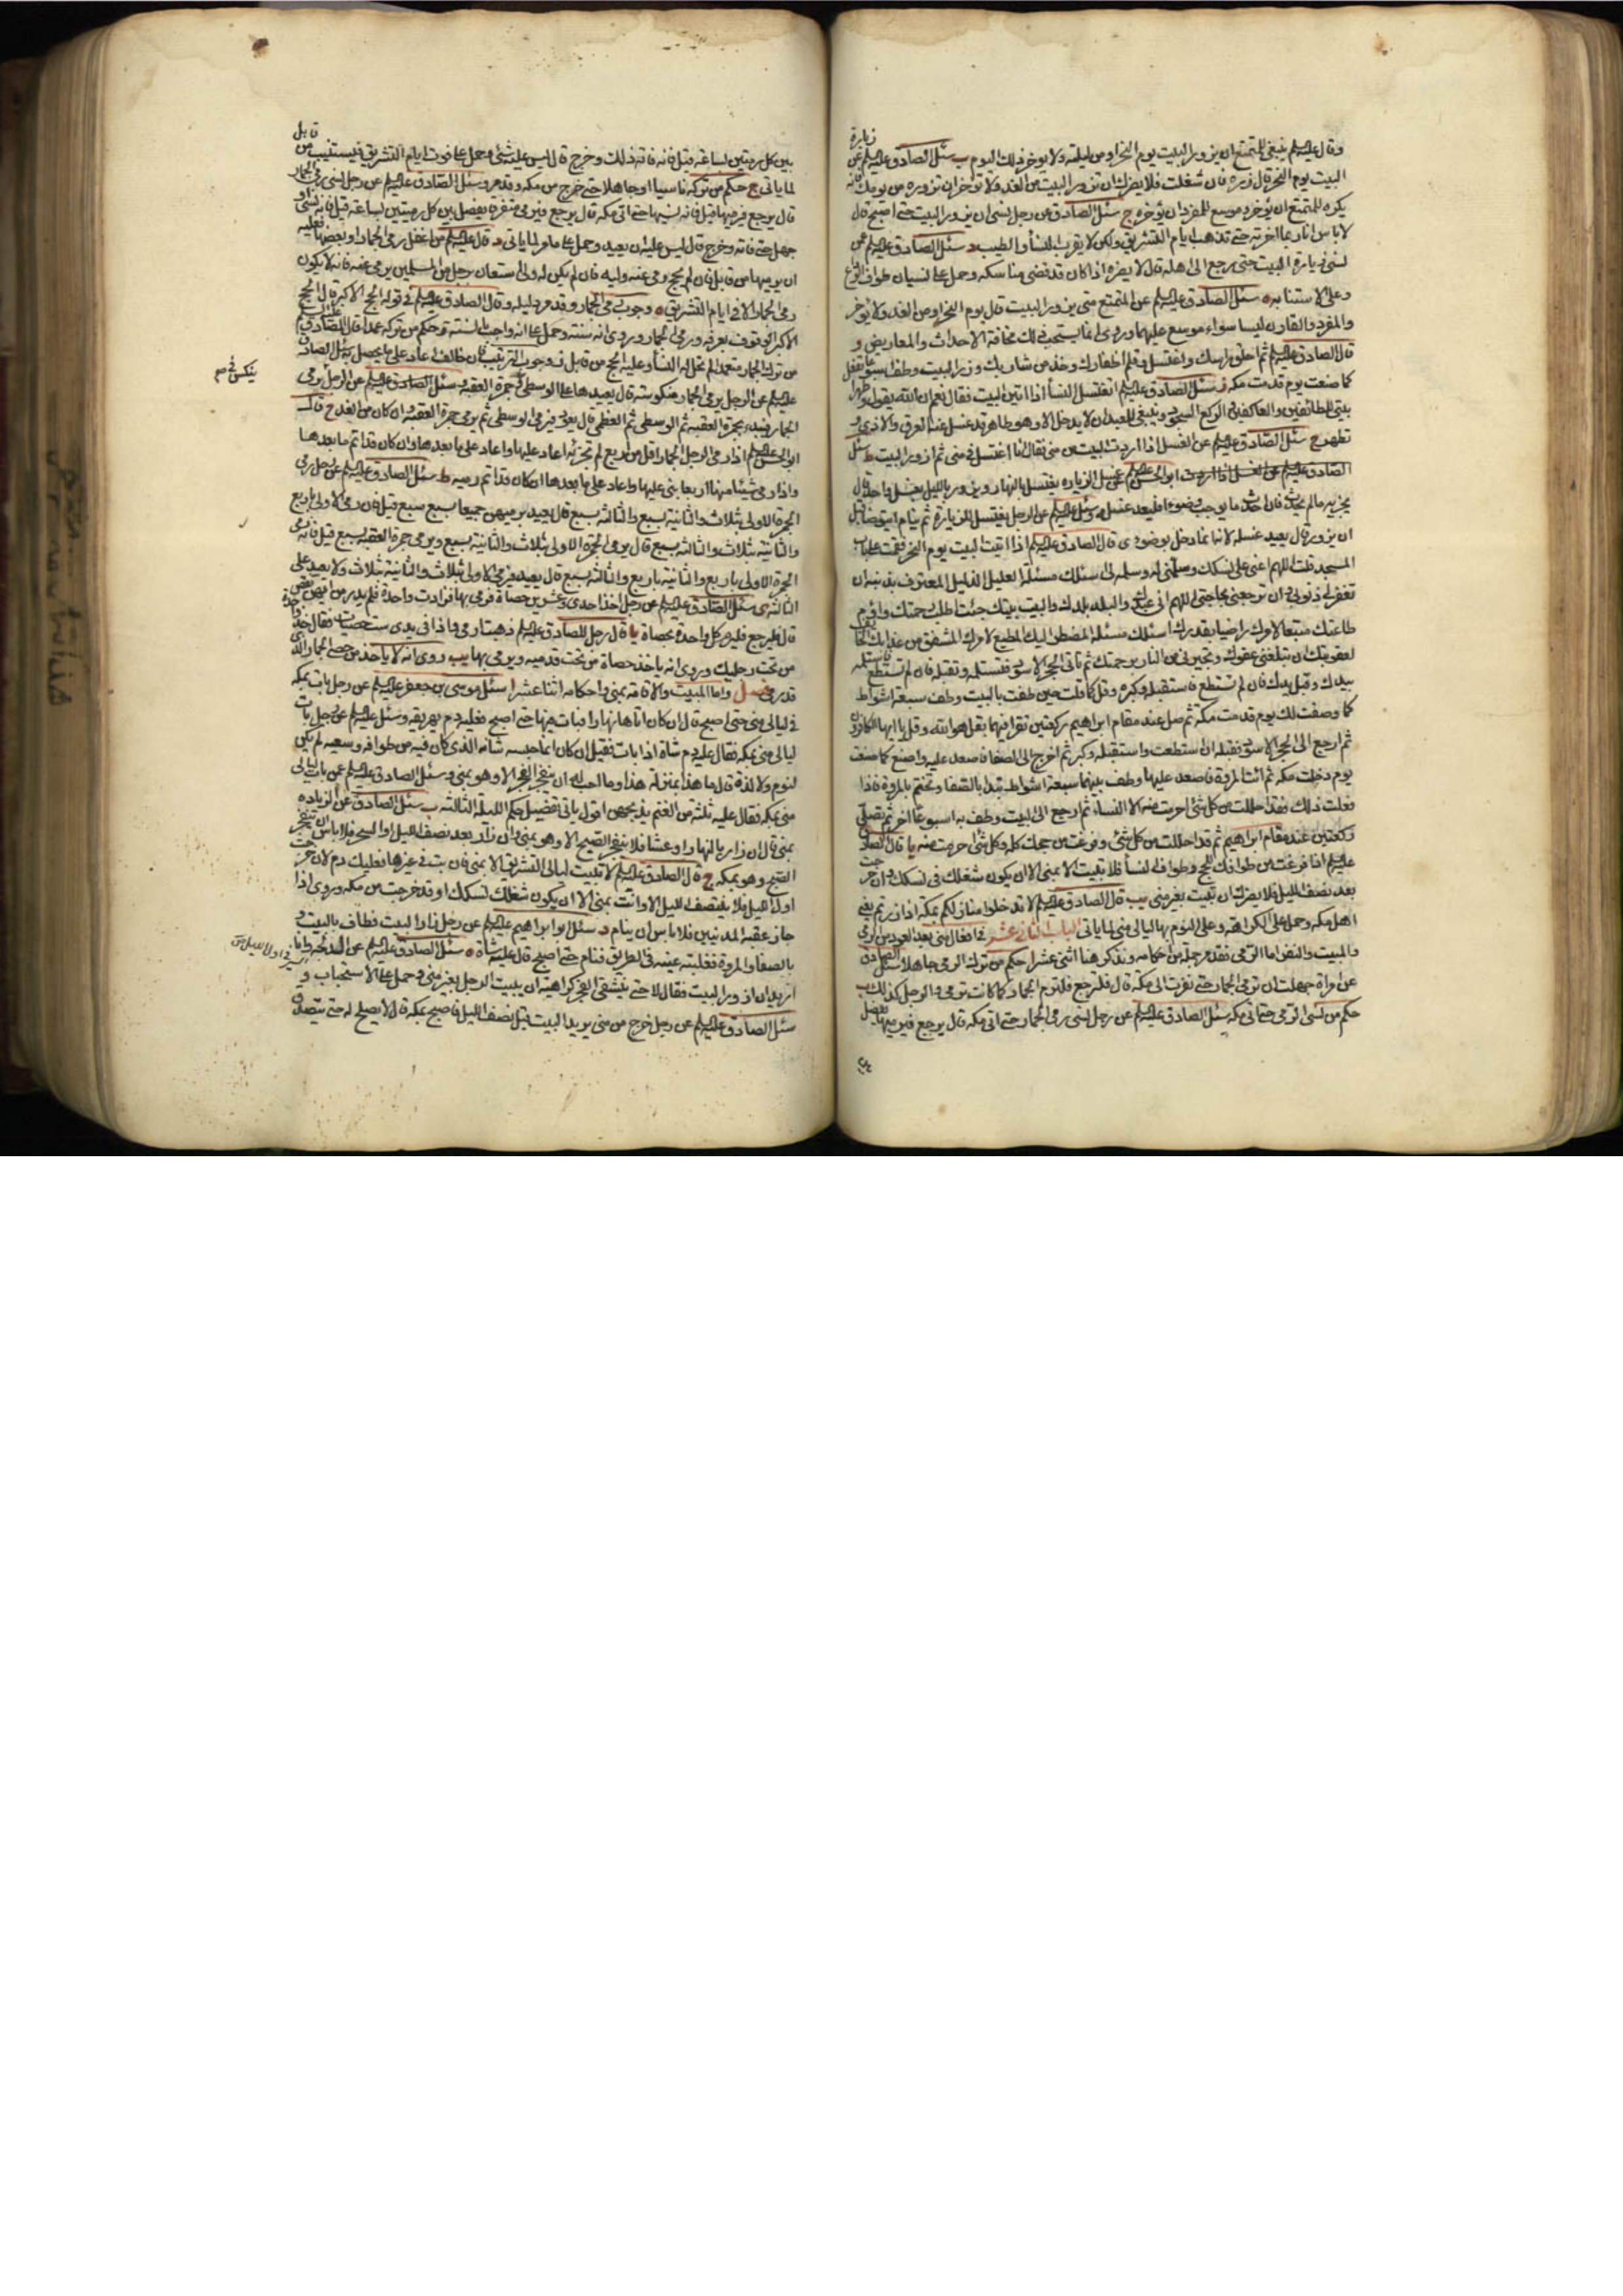 وقال عليه السلام ينبغي للمتمتع ان يزور البيت يوم النحر او من ليلته ولا يؤخر ذلك اليوم ب سئل الصادق عليه السلام عن زيارة
البيت يوم النحر قال زره فان شغلت فلا يضرك ان تزور البيت من الغد ولا تؤخر ان تزوره من يومك فانه
يكره للمتمتع ان يؤخره وموسع للمفرد ان يؤخره ج سئل الصادق عن رجل نسي ان يزور البيت حتى اصبح قال
لا باس انا ربما اخرته حتى تذهب ايام التشريق ولكن لا يقرب النساء والطيب د سئل الصادق عليه السلام عمن
نسي زيارة البيت حتى يرجع الى اهله قال لا يضره اذا كان قد قضى مناسكه وحمل على نسيان طواف الوداع
وعلى الاستنابه ه سئل الصادق عليه السلام عن المتمتع متى يزور البيت قال يوم النحر او من الغد ولا يؤخر
والمفرد والقارن ليسا سواء موسع عليهما وروى انما يستحب ذلك مخافة الاحداث والمعاريض و
قال الصادق عليه السلام ثم احلق راسك واغتسل وقلم اظفارك وخذ من شاربك وزر البيت وطف اسبوعا تفعل
كما صنعت يوم قدمت مكه ز سئل الصادق عليه السلام اتغتسل النساء اذا اتين البيت فقال نعم ان الله يقول طهرا
بيتي للطائفين والعاكفين والركع السجود وينبغي للعبد ان لا يدخل الا وهو طاهر قد غسل عنه العرق والاذى و
تطهر ح سئل الصادق عليه السلام عن الغسل اذا اردت البيت من منى فقال انا اغتسل في منى ثم ازور البيت ط سئل
ابو الحسن عليه السلام عن غسل الزياره يغتسل بالنهار ويزور بالليل بغسل واحد قال
يجزيه ما لم يحدث فان احدث ما يوجب وضوءا فليعد غسله وسئل عليه السلام عن الرجل يغتسل للزيارة ثم ينام ايتوضا قبل
ان يزور قال يعيد غسله لانه انما دخل بوضوء ى قال الصادق عليه السلام اذا اتيت البيت يوم النحر فقمت على باب
المسجد قلت اللهم اعني على نسكك وسلمني له وسلمه لي اسئلك مسئلة العليل الذليل المعترف بذنبه ان
تغفر لي ذنوبي وان ترجعني بحاجتي اللهم اني عبدك والبلد بلدك والبيت بيتك جئت اطلب رحمتك واؤم
طاعتك متبعا لامرك راضيا بقدرك اسئلك مسئله المضطر اليك المطيع لامرك المشفق من عذابك الخائف
لعقوبتك ان تبلغني عفوك وتجيرني من النار برحمتك ثم تاتي الحجر الاسود فتستلمه وتقبله فان لم تستطع فاستلمه
بيدك وقبل يدك فان لم تستطع فاستقبله وكبره وقل كما قلت حين طفت بالبيت وطف سبعة اشواط
كما وصفت لك يوم قدمت مكة ثم صل عند مقام ابراهيم ركعتين تقرا فيهما بقل هو الله وقل يا ايها الكافرون
ثم ارجع الى الحجر الاسود فقبله ان استطعت واستقبله وكبر ثم اخرج الى الصفا فاصعد عليه واصنع كما صنعت
يوم دخلت مكه ثم ائت المروة فاصعد عليها وطف بينهما سبعة اشواط تبدا بالصفا وتختم بالمروة فاذا
فعلت ذلك فقد احللت من كل شئ احرمت منه الا النساء ثم ارجع الى البيت وطف به اسبوعا اخر ثم تصلي
ركعتين عند مقام ابراهيم ثم قد احللت من كل شئ وفرغت من حجك كله وكل شئ حرمت منه يا قال الصادق
عليه السلام اذا فرغت من طوافك للحج وطواف النساء فلا تبيت الا بمنى الا ان يكون شغلك في نسكك وان خرجت
بعد نصف الليل فلا يضرك ان تبيت بغير منى يب قال الصادق عليه السلام لا تدخلوا منازلكم بمكة اذا زرتم يعني
اهل مكه وحمل على الكراهة وعلى النوم بها ليالي منى لما ياتي الباب الثاني عشر في افعال منى بعد العود من الرمي
والمبيت والنفر اما الرمي فقد مر جملة من احكامه ونذكر هنا اثنى عشر ا حكم من ترك الرمي جاهلا سئل الصادق
عن امراة جهلت ان ترمي الجمار حتى نفرت الى مكة قال فلترجع فلترم الجمار كما كانت ترمي والرجل كذلك ب
حكم من نسي الرمي حتى اتى مكه سئل الصادق عليه السلام عن رجل نسي رمي الجمار حتى اتى مكه قال يرجع فيرميها يفصل
بين
بين كل رميتين بساعة قيل فانه فاته ذلك وخرج قال ليس عليه شئ وحمل على فوت ايام التشريق فيستنيب من قابل
لما ياتي ج حكم من تركه ناسيا او جاهلا حتى خرج من مكه وقد مر وسئل الصادق عليه السلام عن رجل نسي رمي الجمار
قال يرجع فيرميها قيل فانه نسيها حتى اتى مكه قال يرجع فيرمي متفرقة يفصل بين كل رميتين بساعة قيل فانه نسي او
جهل حتى فاته وخرج قال ليس عليه ان يعيد وحمل على ما مر لما ياتي د قال عليه السلام من اغفل رمي الجمار او بعضها فعليه
ان يرميها من قابل فان لم يحج رمى عنه وليه فان لم يكن له ولي استعان رجل من المسلمين يرمي عنه فانه لا يكون
رمي الجمار الا في ايام التشريق ه وجوب رمي الجمار وقد مر دليله وقال الصادق عليه السلام في قوله الحج الاكبر قال الحج
الاكبر الوقوف بعرفه ورمي الجمار وروي انه سنة وحمل على انه واجب بالسنة و حكم من تركه عمدا قال الصادق عليه السلام
من ترك الجمار متعمدا لم تحل له النساء وعليه الحج من قابل ز وجوب الترتيب فان خالف اعاد على ما يحصل به سئل الصادق
عليه السلام عن الرجل يرمي الجمار منكوسة قال يعيدها على الوسطى وجمرة العقبة وسئل الصادق عليه السلام عن الرجل يرمي
ينكس في م
الجمار فيبدء بجمرة العقبة ثم الوسطى ثم العظمى قال يعود فيرمي الوسطى ثم يرمي جمرة العقبة وان كان من الغد ح قال
ابو الحسن عليه السلام اذا رمى الرجل الجمار اقل من اربع لم تجزئه اعاد عليها واعاد على ما بعدها وان كان قد اتم ما بعدها
واذا رمى شيئا منها اربعا بنى عليها واعاد على ما بعدها ان كان قد اتم رميه ط سئل الصادق عليه السلام عن رجل رمى
الجمرة الاولى بثلاث والثانية بسبع والثالثة بسبع قال يعيد يرميهن جميعا بسبع سبع قيل فان رمى الاولى باربع
والثانية بثلاث والثالثة بسبع قال يرمي الجمرة الاولى بثلاث والثانية بسبع ويرمي جمرة العقبة بسبع قيل فانه رمى
الجمرة الاولى باربع والثانية باربع والثالثة بسبع قال يعيد فيرمي الاولى بثلاث والثانية بثلاث ولا يعيد على
الثالثة ى سئل الصادق عليه السلام عن رجل اخذ احدى وعشرين حصاة فرمى بها فزادت واحدة فلم يدر من ايهن نقص
قال فليرجع فليرم كل واحدة بحصاة يا قال رجل للصادق عليه السلام ذهبت ارمي فاذا في يدي ست حصيات فقال خذ واحدة
من تحت رجليك وروي انه ياخذ حصاة من تحت قدميه ويرمي بها يب روي انه لا ياخذ من حصى الجمار الذي
قد رمي فصل واما المبيت والاقامة بمنى واحكامه اثنا عشر ا سئل موسى بن جعفر عليه السلام عن رجل بات بمكه
في ليالي منى حتى اصبح قال ان كان اتاها نهارا فبات فيها حتى اصبح فعليه دم يهريقه وسئل عليه السلام عن رجل بات
ليالي منى بمكه فقال عليه دم شاة اذا بات فقيل ان كان انما حبسه شانه الذي كان فيه من طوافه وسعيه لم يكن
لنوم ولا لذة قال ما هذا بمنزلة هذا وما احب له ان ينفجر الفجر الا وهو بمنى وسئل الصادق عليه السلام عمن بات ليالي
منى بمكه فقال عليه ثلثة من الغنم يذبحهن اقول ياتي تفصيل حكم الليلة الثالثه ب سئل الصادق عن الزياره
بمنى قال ان زار بالنهار او عشا فلا ينفجر الصبح الا وهو بمنى وان زار بعد نصف الليل او السحر فلا باس ان ينفجر
الصبح وهو بمكه ج قال الصادق عليه السلام لا تبيت ليالي التشريق الا بمنى فان بت في غيرها فعليك دم لان خرجت
اول الليل فلا ينتصف الليل الا وانت بمنى الا ان يكون شغلك نسكك او قد خرجت من مكه وروي اذا
جاز عقبة المدنيين فلا باس ان ينام د سئل ابو ابراهيم عليه السلام عن رجل زار البيت فطاف بالبيت و
بالصفا والمروة فغلبته عينه في الطريق فنام حتى اصبح قال عليه شاة ه سئل الصادق عليه السلام عن الدلجة وانا
اسير في اول الليل
اريد ان ازور البيت فقال لا حتى ينشق الفجر كراهية ان يبيت الرجل بغير منى وحمل على الاستحباب و
سئل الصادق عليه السلام عن رجل خرج من منى يريد البيت قبل نصف الليل فاصبح بمكة قال لا يصلح له حتى يتصدق